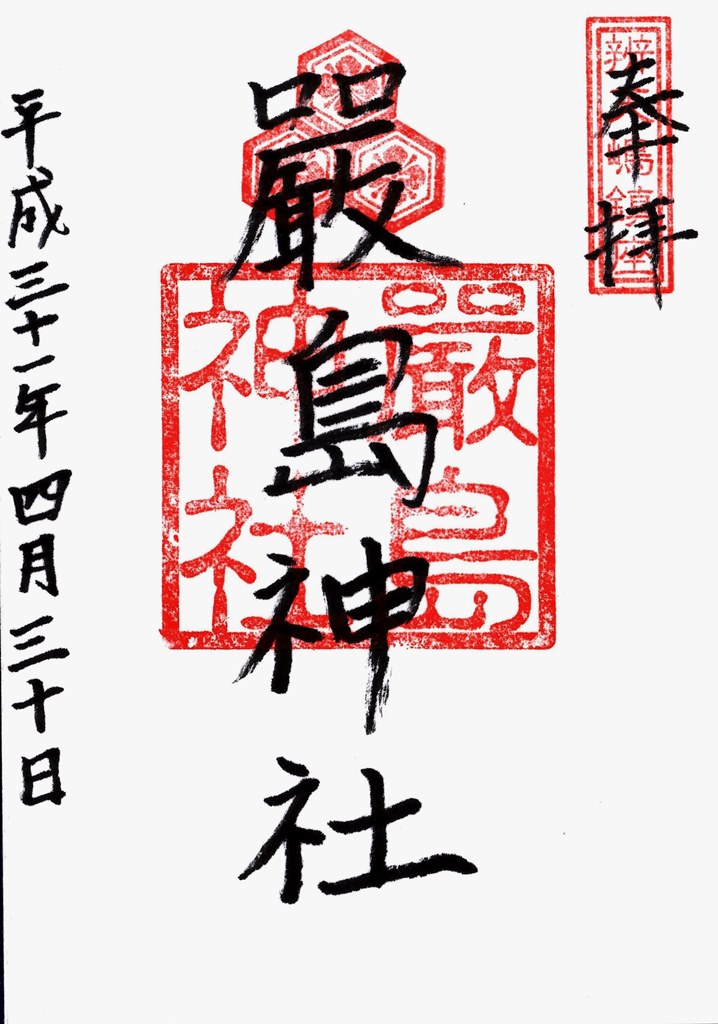 奉拝
辨嶋鎮座
嚴島神社
嚴島
神社
平成三十一年四月三十日